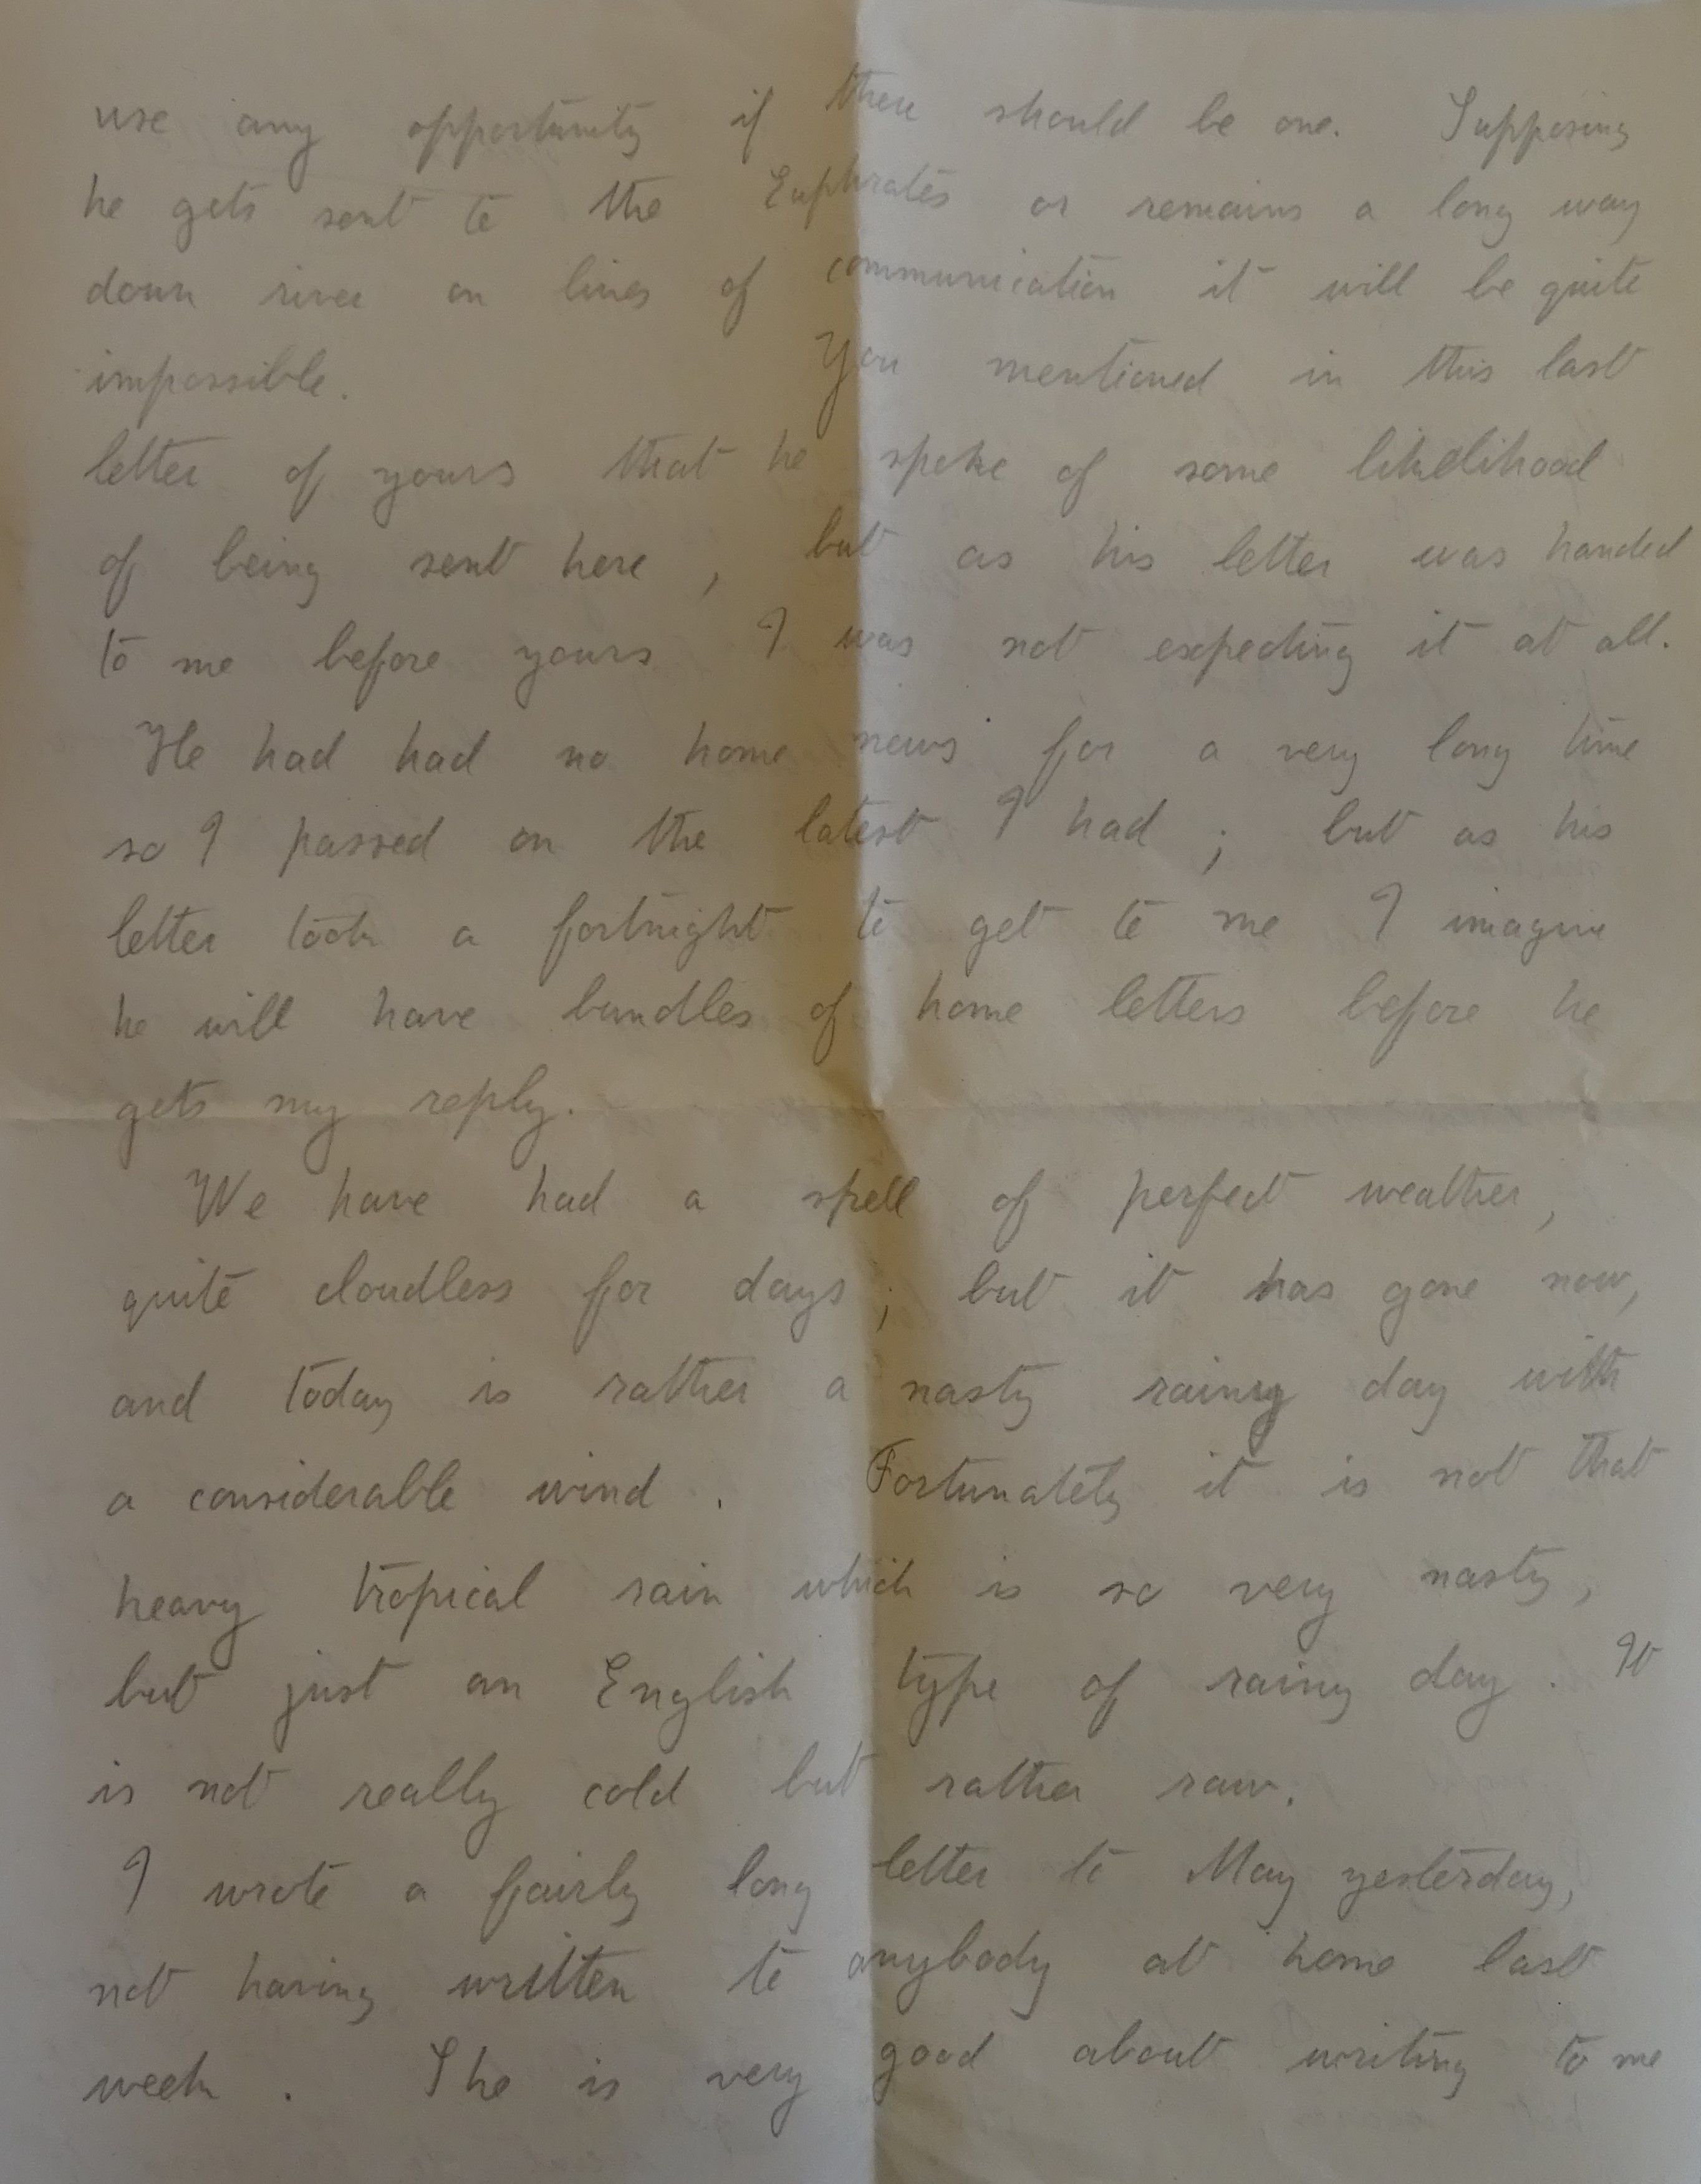 use any opportunity if there should be one. Supposing
he gets sent to the Euphrates or remains a long way
down river on lines of communication it will be quite
impossible. You mentioned in this last
letter of yours that he spoke of some likelihood
of being sent here, but as his letter was handed
to me before yours I was not expecting it at all.
He had had no home news for a very long time
so I passed on the latest I had; but as his
letter took a fortnight to get to me I imagine
he will have bundles of home letters before he
gets my reply.
We have had a spell of perfect weather,
quite cloudless for days; but it has gone now,
and today is rather a nasty rainy day with
a considerable wind. Fortunately it is not that
heavy tropical rain which is so very nasty,
but just an English type of rainy day. It
is not really cold but rather raw.
I wrote a fairly long letter to May yesterday,
not having written to anybody at home last
week. She is very good about writing to me